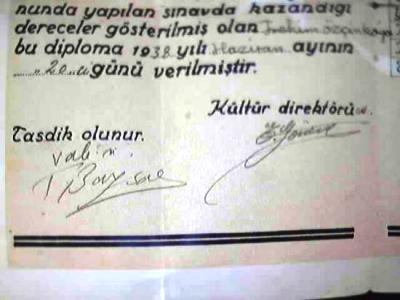 nunda yapılan sınavda kazandığı
dereceler gösterilmiş olan İbrahim Özçankaya
bu diploma 1938 yılı Haziran ayının
20 ci günü verilmiştir.
Kültür direktörü
Tasdik olunur.
Vali